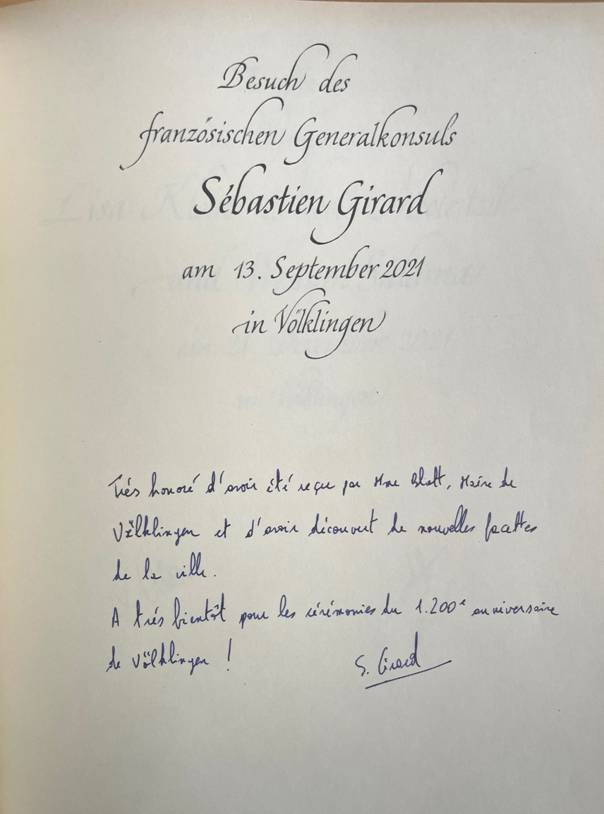 Besuch des
französischen Generalkonsuls
Sébastien Girard
am 13. September 2021
in Völklingen
Très honoré d'avoir été reçu par Mme Blatt, Maire de
Völklingen et d'avoir découvert de nouvelles facettes
de la ville.
A très bientôt pour les cérémonies du 1.200e anniversaire
de Völklingen !
S. Girard